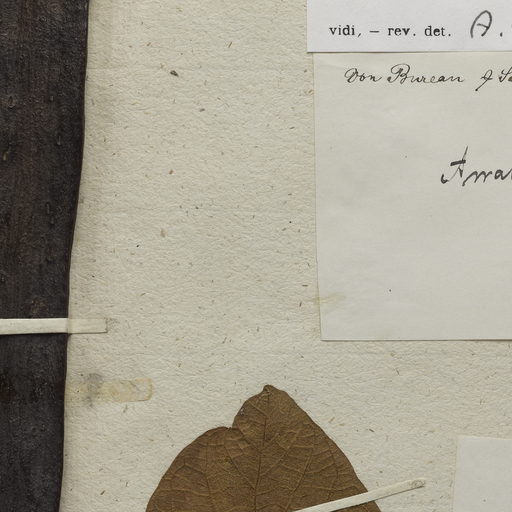 vidi, – rev. det. A.
Don Bureau & S
Awa